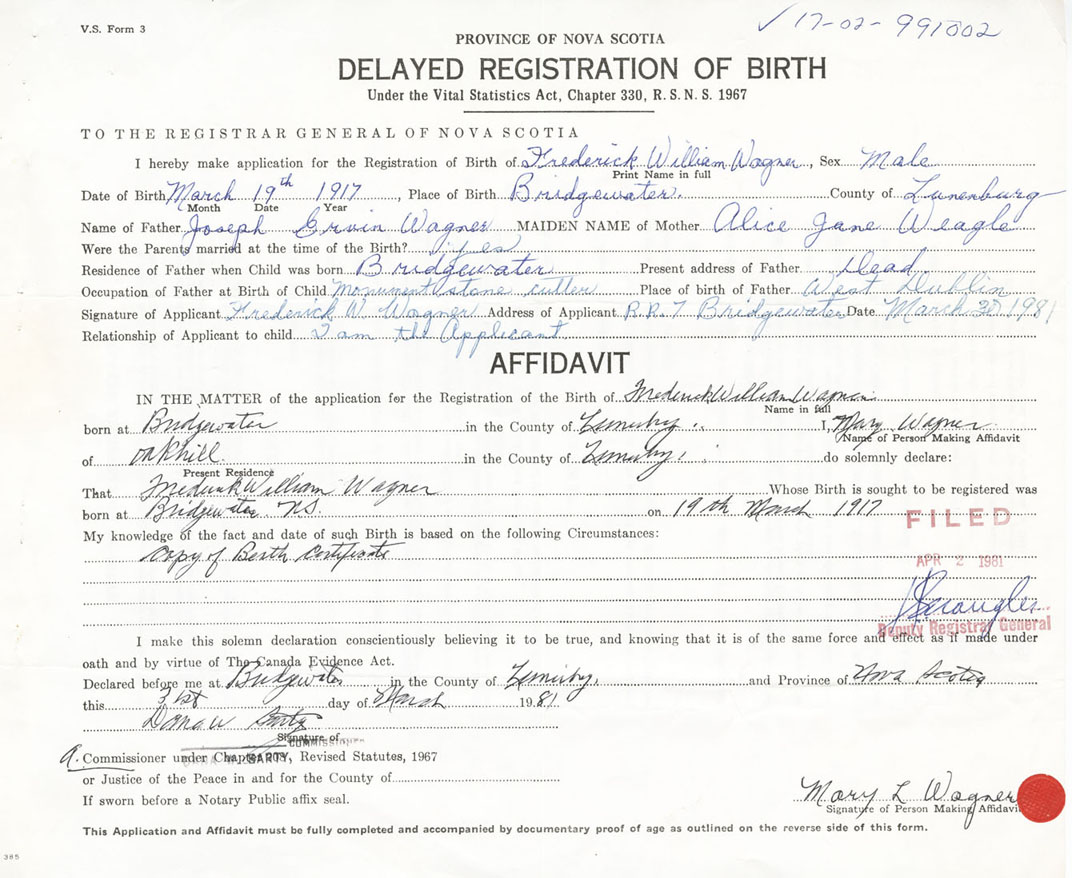 V.S. Form 3
✓ 17-02-991002
PROVINCE OF NOVA SCOTIA
DELAYED REGISTRATION OF BIRTH
Under the Vital Statistics Act, Chapter 330, R. S. N. S. 1967
TO THE REGISTRAR GENERAL OF NOVA SCOTIA
I hereby make application for the Registration of Birth of Frederick William Wagner, Sex Male
Print Name in full
Date of Birth March 19th 1917, Place of Birth Bridgewater. County of Lunenburg
Month Date Year
Name of Father Joseph Ervin Wagner MAIDEN NAME of Mother Alice Jane Weagle
Were the Parents married at the time of the Birth? yes
Residence of Father when Child was born Bridgewater Present address of Father Dead
Occupation of Father at Birth of Child Monument stone cutter Place of birth of Father West Dublin
Signature of Applicant Frederick W. Wagner Address of Applicant R.R.7 Bridgewater Date March 1981
Relationship of Applicant to child I am the Applicant
AFFIDAVIT
IN THE MATTER of the application for the Registration of the Birth of Frederick William Wagner
Name in full
born at Bridgewater in the County of I, Mary Wagner
Name of Person Making Affidavit
of Oakhill in the County of do solemnly declare:
Present Residence
That Frederick William Wagner Whose Birth is sought to be registered was
born at Bridgewater NS. on 19th March 1917
FILED
My knowledge of the fact and date of such Birth is based on the following Circumstances:
Copy of Berth Certificate
APR 2 1981
Deputy Registrar General
I make this solemn declaration conscientiously believing it to be true, and knowing that it is of the same force and effect as if made under
oath and by virtue of The Canada Evidence Act.
Declared before me at Bridgewater in the County of and Province of Nova Scotia
this 31st day of March 1981
Signature of
COMMISSIONER
A. Commissioner under Chapter, Revised Statutes, 1967
or Justice of the Peace in and for the County of
If sworn before a Notary Public affix seal.
Mary L Wagner
Signature of Person Making Affidavit
This Application and Affidavit must be fully completed and accompanied by documentary proof of age as outlined on the reverse side of this form.
385